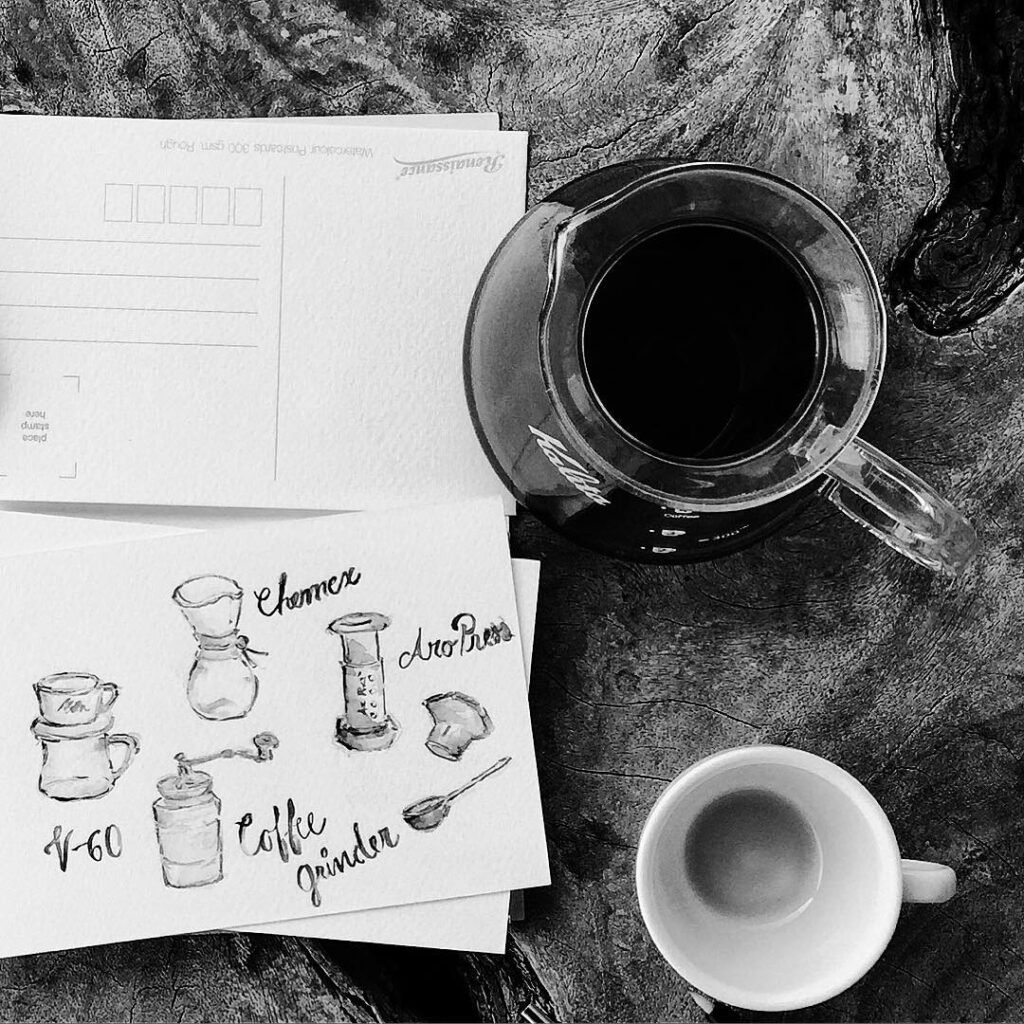 Renaissance
Watercolour Postcards 300 gsm Rough
place
stamp
here
Kalita
Coffee
4
300
Chemex
AroPress
V-60
Coffee
grinder